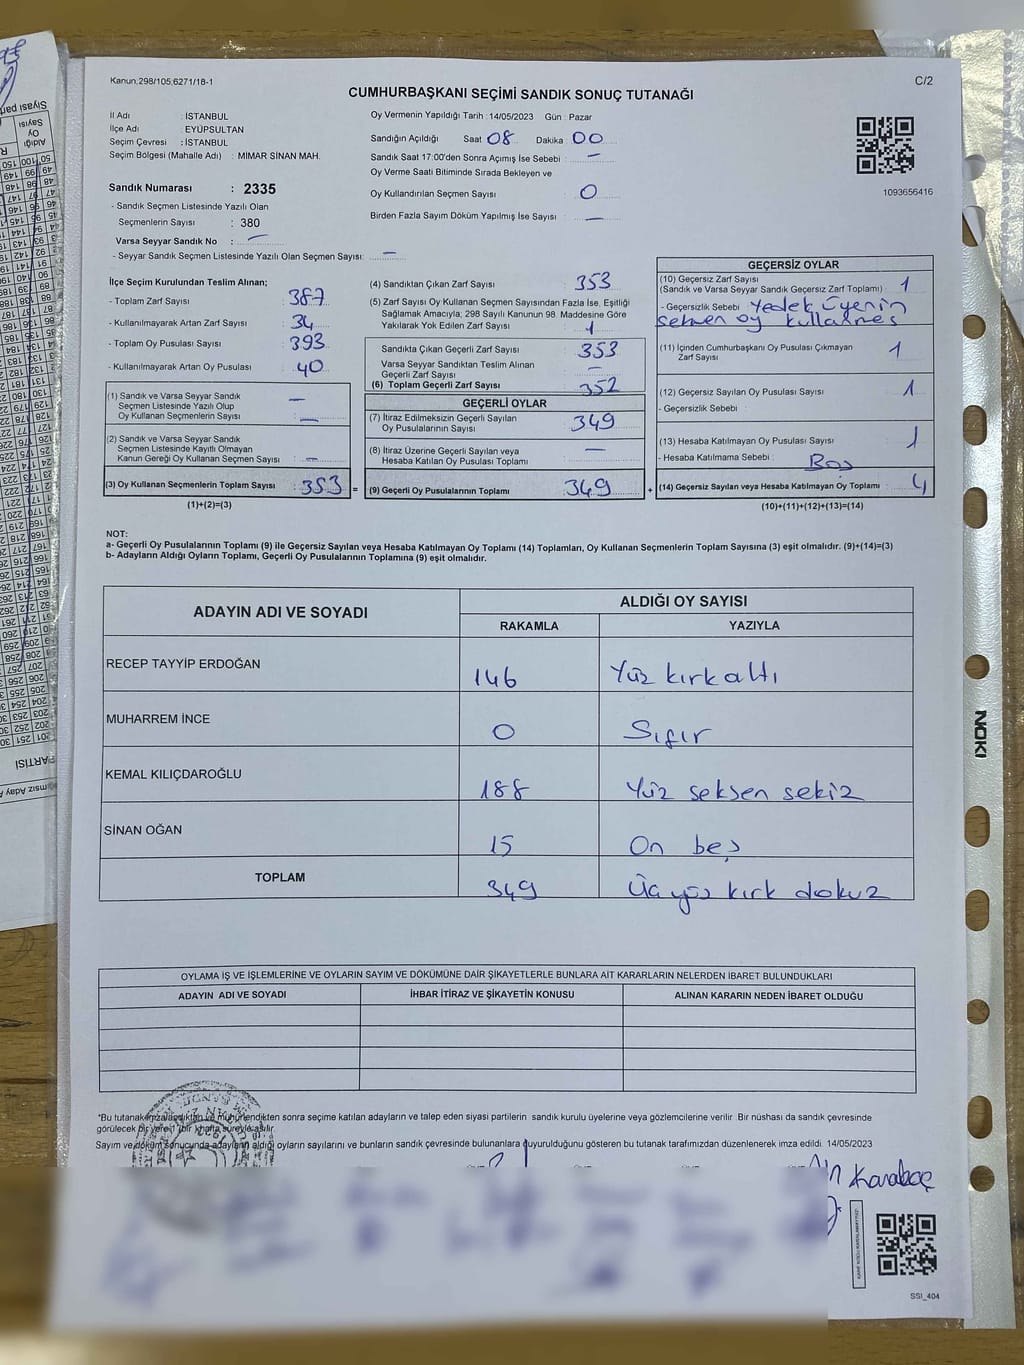 Kanun:298/105,6271/18-1
C/2
CUMHURBAŞKANI SEÇİMİ SANDIK SONUÇ TUTANAĞI
İl Adı : İSTANBUL
İlçe Adı : EYÜPSULTAN
Seçim Çevresi : İSTANBUL
Seçim Bölgesi (Mahalle Adı) : MIMAR SİNAN MAH.
Sandık Numarası : 2335
- Sandık Seçmen Listesinde Yazılı Olan
Seçmenlerin Sayısı : 380
Varsa Seyyar Sandık No : —
- Seyyar Sandık Seçmen Listesinde Yazılı Olan Seçmen Sayısı: —
Oy Vermenin Yapıldığı Tarih : 14/05/2023 Gün : Pazar
Sandığın Açıldığı Saat 08 Dakika 00
Sandık Saat 17:00'den Sonra Açımış İse Sebebi : —
Oy Verme Saati Bitiminde Sırada Bekleyen ve
Oy Kullandırılan Seçmen Sayısı : 0
Birden Fazla Sayım Döküm Yapılmış İse Sayısı : —
1093656416
İlçe Seçim Kurulundan Teslim Alınan;
- Toplam Zarf Sayısı : 387
- Kullanılmayarak Artan Zarf Sayısı : 34
- Toplam Oy Pusulası Sayısı : 393
- Kullanılmayarak Artan Oy Pusulası : 40
(1) Sandık ve Varsa Seyyar Sandık
Seçmen Listesinde Yazılı Olup
Oy Kullanan Seçmenlerin Sayısı : —
(2) Sandık ve Varsa Seyyar Sandık
Seçmen Listesinde Kayıtlı Olmayan
Kanun Gereği Oy Kullanan Seçmen Sayısı : —
(3) Oy Kullanan Seçmenlerin Toplam Sayısı : 353
(1)+(2)=(3)
=
(4) Sandıktan Çıkan Zarf Sayısı : 353
(5) Zarf Sayısı Oy Kullanan Seçmen Sayısından Fazla İse, Eşitliği
Sağlamak Amacıyla; 298 Sayılı Kanunun 98. Maddesine Göre
Yakılarak Yok Edilen Zarf Sayısı : 1
Sandıkta Çıkan Geçerli Zarf Sayısı : 353
Varsa Seyyar Sandıktan Teslim Alınan
Geçerli Zarf Sayısı : —
(6) Toplam Geçerli Zarf Sayısı : 352
GEÇERLİ OYLAR
(7) İtiraz Edilmeksizin Geçerli Sayılan
Oy Pusulalarının Sayısı : 349
(8) İtiraz Üzerine Geçerli Sayılan veya
Hesaba Katılan Oy Pusulası Toplamı : —
(9) Geçerli Oy Pusulalarının Toplamı : 349
+
GEÇERSİZ OYLAR
(10) Geçersiz Zarf Sayısı : 1
(Sandık ve Varsa Seyyar Sandık Geçersiz Zarf Toplamı)
- Geçersizlik Sebebi : Yedek üyenin
seçmen oy kullanmış
(11) İçinden Cumhurbaşkanı Oy Pusulası Çıkmayan
Zarf Sayısı : 1
(12) Geçersiz Sayılan Oy Pusulası Sayısı : 1
- Geçersizlik Sebebi :
(13) Hesaba Katılmayan Oy Pusulası Sayısı : 1
- Hesaba Katılmama Sebebi : Boş
(14) Geçersiz Sayılan veya Hesaba Katılmayan Oy Toplamı : 4
(10)+(11)+(12)+(13)=(14)
NOT:
a- Geçerli Oy Pusulalarının Toplamı (9) ile Geçersiz Sayılan veya Hesaba Katılmayan Oy Toplamı (14) Toplamları, Oy Kullanan Seçmenlerin Toplam Sayısına (3) eşit olmalıdır. (9)+(14)=(3)
b- Adayların Aldığı Oyların Toplamı, Geçerli Oy Pusulalarının Toplamına (9) eşit olmalıdır.
ADAYIN ADI VE SOYADI
ALDIĞI OY SAYISI
RAKAMLA YAZIYLA
RECEP TAYYİP ERDOĞAN 146 Yüz kırk altı
MUHARREM İNCE 0 Sıfır
KEMAL KILIÇDAROĞLU 188 Yüz seksen sekiz
SİNAN OĞAN 15 On beş
TOPLAM 349 Üç yüz kırk dokuz
OYLAMA İŞ VE İŞLEMLERİNE VE OYLARIN SAYIM VE DÖKÜMÜNE DAİR ŞİKAYETLERLE BUNLARA AİT KARARLARIN NELERDEN İBARET BULUNDUKLARI
ADAYIN ADI VE SOYADI İHBAR İTİRAZ VE ŞİKAYETİN KONUSU ALINAN KARARIN NEDEN İBARET OLDUĞU
*Bu tutanak imzalandıktan ve mühürlendikten sonra seçime katılan adayların ve talep eden siyasi partilerin sandık kurulu üyelerine veya gözlemcilerine verilir. Bir nüshası da sandık çevresinde
görülecek bir yere 1 (bir) hafta süreyle asılır.
Sayım ve döküm sonucunda adayların aldığı oyların sayılarını ve bunların sandık çevresinde bulunanlara duyurulduğunu gösteren bu tutanak tarafımızdan düzenlenerek imza edildi. 14/05/2023
Karabaç
SSI_404
NOKI